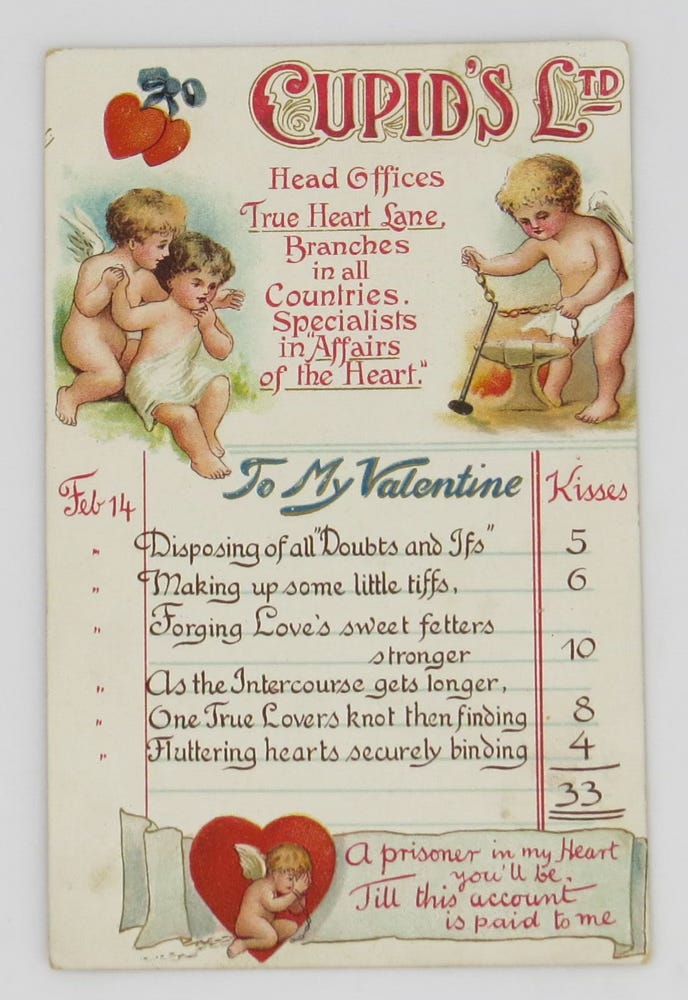 CUPID'S LTD
Head Offices
True Heart Lane,
Branches
in all
Countries.
Specialists
in "Affairs
of the Heart."
To My Valentine
Feb 14 Kisses
" Disposing of all "Doubts and Ifs" 5
" Making up some little tiffs, 6
" Forging Love's sweet fetters
stronger 10
" As the Intercourse gets longer,
" One True Lovers knot then finding 8
" Fluttering hearts securely binding 4
33
A prisoner in my Heart
you'll be.
Till this account
is paid to me